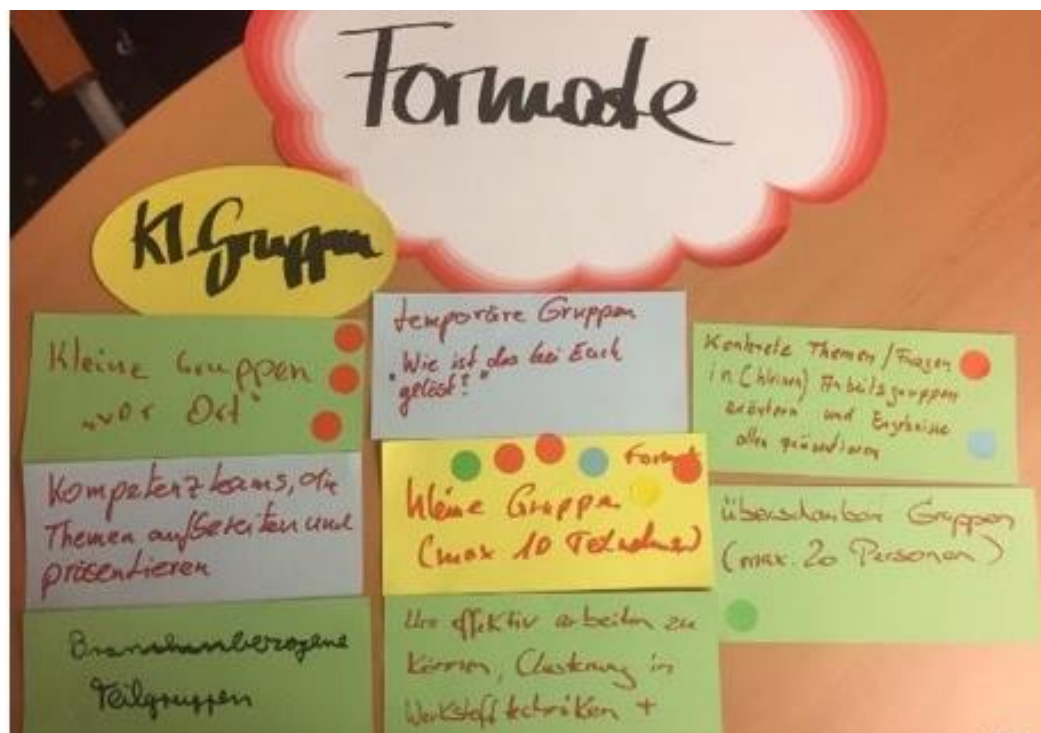 Formate
Kl. Gruppen
Kleine Gruppen
"vor Ort"
Kompetenzteams, die
Themen aufbereiten und
präsentieren
Branchenbezogene
Teilgruppen
temporäre Gruppen
"Wie ist das bei Euch
gelöst?"
Format
kleine Gruppen
(max 10 Teilnehmer)
Um effektiv arbeiten zu
können, Clusterung in
Werkstofftechniken +
Konkrete Themen/Fragen
in (kleinen) Arbeitsgruppen
erörtern und Ergebnisse
allen präsentieren
überschaubare Gruppen
(max. 20 Personen)